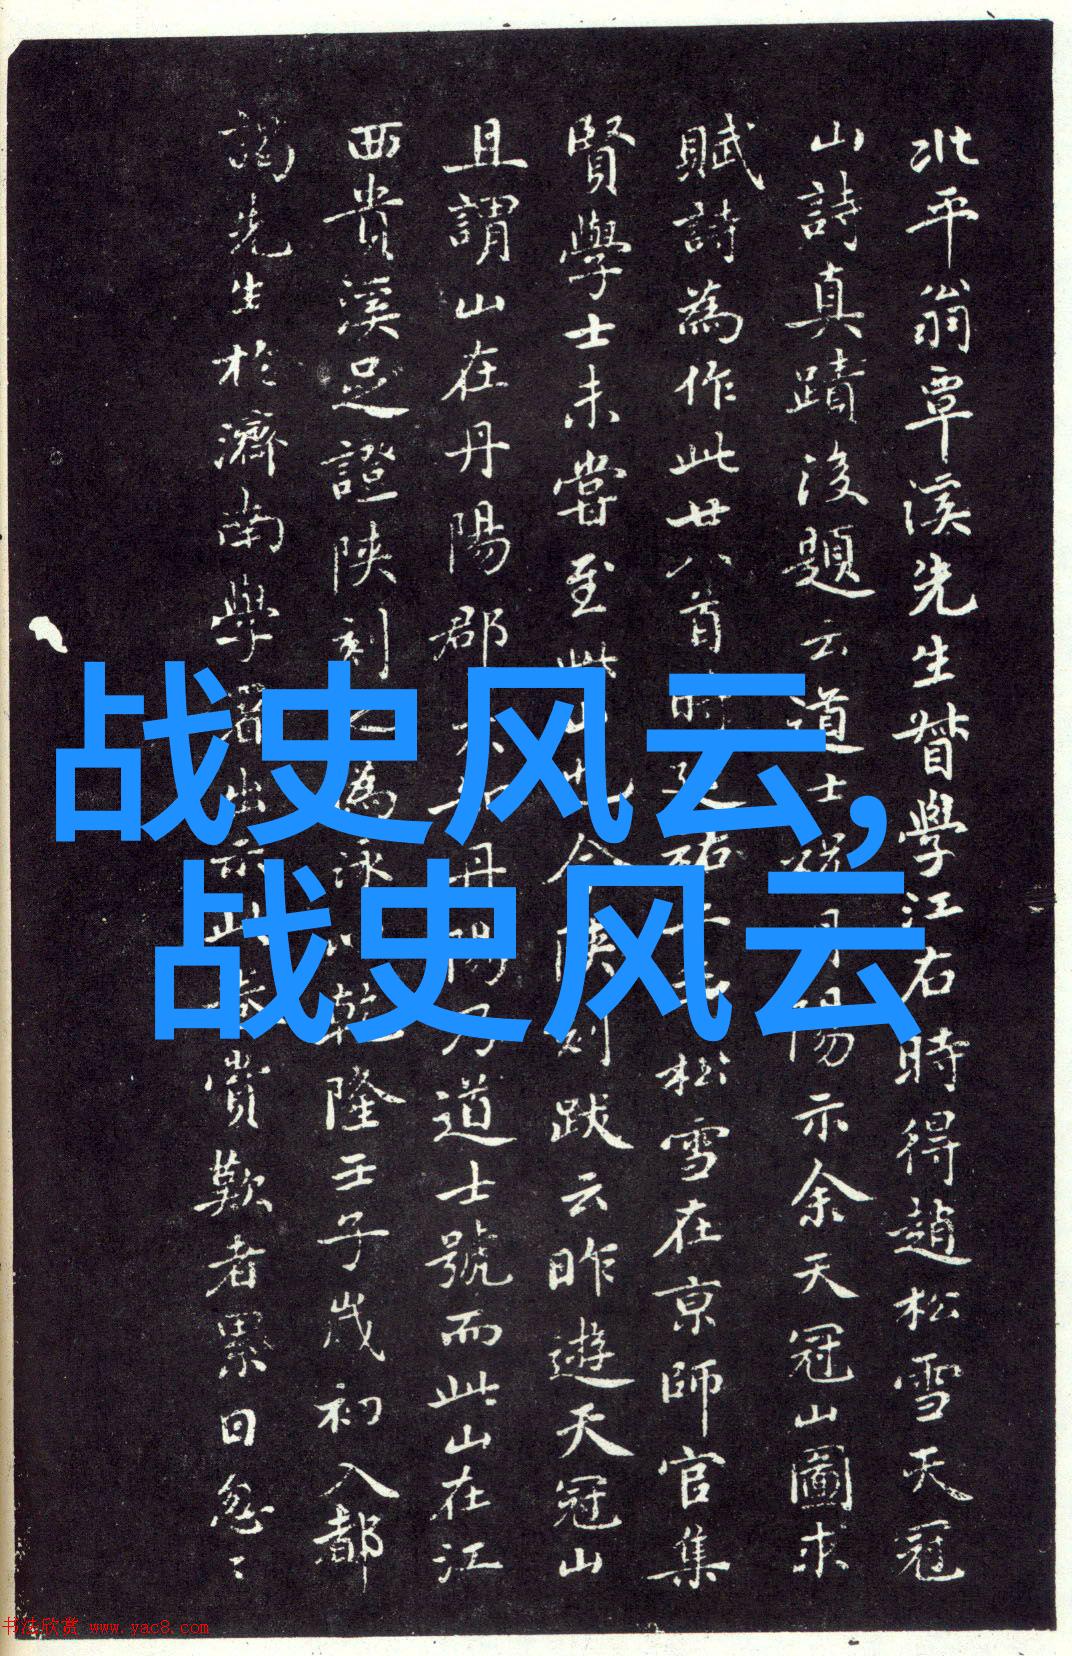 北平翁覃溪先生督學江右時得趙松雪天冠
山詩真蹟後題云道士 丹陽示余天冠山圖求
賦詩為作此廿八首時延祐二 松雪在京師官集
賢學士未嘗至此山也今陝刻跋云昨遊天冠山
且謂山在丹陽郡 丹陽乃道士號而此山在江
西貴溪足證陝刻之為 乾隆壬子歲初入都
謁先生於濟南學署出示此卷賞歎者累日忽〻
战史风云,
战史风云
书法欣赏 www.yac8.com